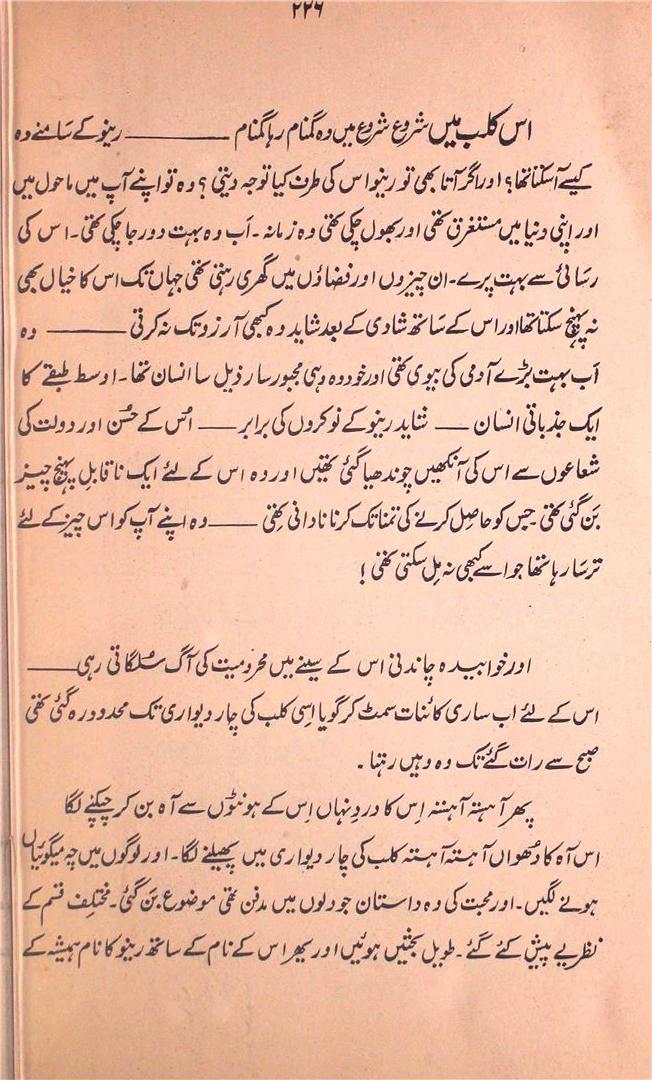 ۲۲۶
اس کلب میں شروع شروع میں وہ گمنام رہا گمنام ——— رینو کے سامنے وہ
کیسے آ سکتا تھا؟ اور اگر آتا بھی تو رینو اس کی طرف کیا توجہ دیتی؟ وہ تو اپنے آپ میں ماحول میں
اور اپنی دنیا میں مستغرق تھی اور بھول چکی تھی وہ زمانہ۔ اَب وہ بہت دور جا چکی تھی۔ اس کی
رسائی سے بہت پرے۔ ان چیزوں اور فضاؤں میں گھری رہتی تھی جہاں تک اس کا خیال بھی
نہ پہنچ سکتا تھا اور اس کے ساتھ شادی کے بعد شاید وہ کبھی آرزو تک نہ کرتی ——— وہ
اَب بہت بڑے آدمی کی بیوی تھی اور خود وہ وہی مجبور سا رذیل سا انسان تھا۔ اوسط طبقے کا
ایک جذباتی انسان —— شاید رینو کے نوکروں کی برابر —— اُس کے حُسن اور دولت کی
شعاعوں سے اس کی آنکھیں چوندھیا گئی تھیں اور وہ اس کے لئے ایک ناقابلِ پہنچ چیز
بَن گئی تھی جس کو حاصل کرنے کی تمنا تک کرنا نادانی تھی ——— وہ اپنے آپ کو اس چیز کے لئے
ترسا رہا تھا جو اسے کبھی نہ مِل سکتی تھی!
اور خوابیدہ چاندنی اس کے سینے میں محرومیت کی آگ سُلگاتی رہی ———
اس کے لئے اب ساری کائنات سمٹ کر گویا اسی کلب کی چار دیواری تک محدود رہ گئی تھی
صبح سے رات گئے تک وہ وہیں رہتا۔
پھر آہستہ آہستہ اِس کا دردِ نہاں اِس کے ہونٹوں سے آہ بن کر چپکنے لگا
اس آہ کا دُھواں آہستہ آہستہ کلب کی چار دیواری میں پھیلنے لگا۔ اور لوگوں میں چہ میگوئیاں
ہونے لگیں۔ اور محبت کی وہ داستان جو دلوں میں مدفن تھی موضوع بَن گئی۔ مختلف قسم کے
نظریے پیش کئے گئے۔ طویل بحثیں ہوئیں اور پھر اس کے نام کے ساتھ رینو کا نام ہمیشہ کے